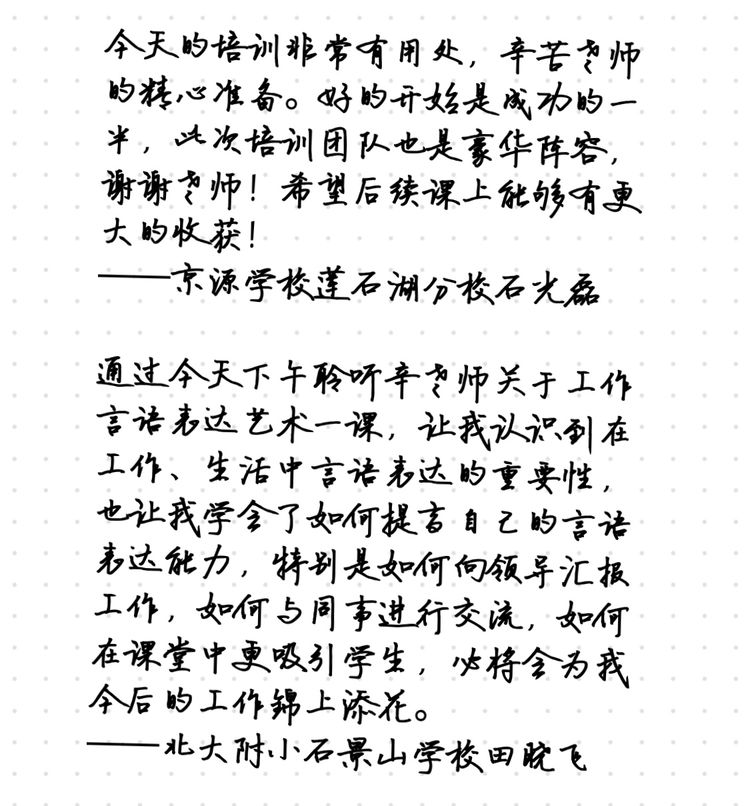 今天的培训非常有用处，辛苦老师
的精心准备。好的开始是成功的一
半，此次培训团队也是豪华阵容，
谢谢老师！希望后续课上能够有更
大的收获！
——京源学校莲石湖分校石光磊
通过今天下午聆听辛老师关于工作
言语表达艺术一课，让我认识到在
工作、生活中言语表达的重要性，
也让我学会了如何提高自己的言语
表达能力，特别是如何向领导汇报
工作，如何与同事进行交流，如何
在课堂中更吸引学生，必将会为我
今后的工作锦上添花。
——北大附小石景山学校田晓飞